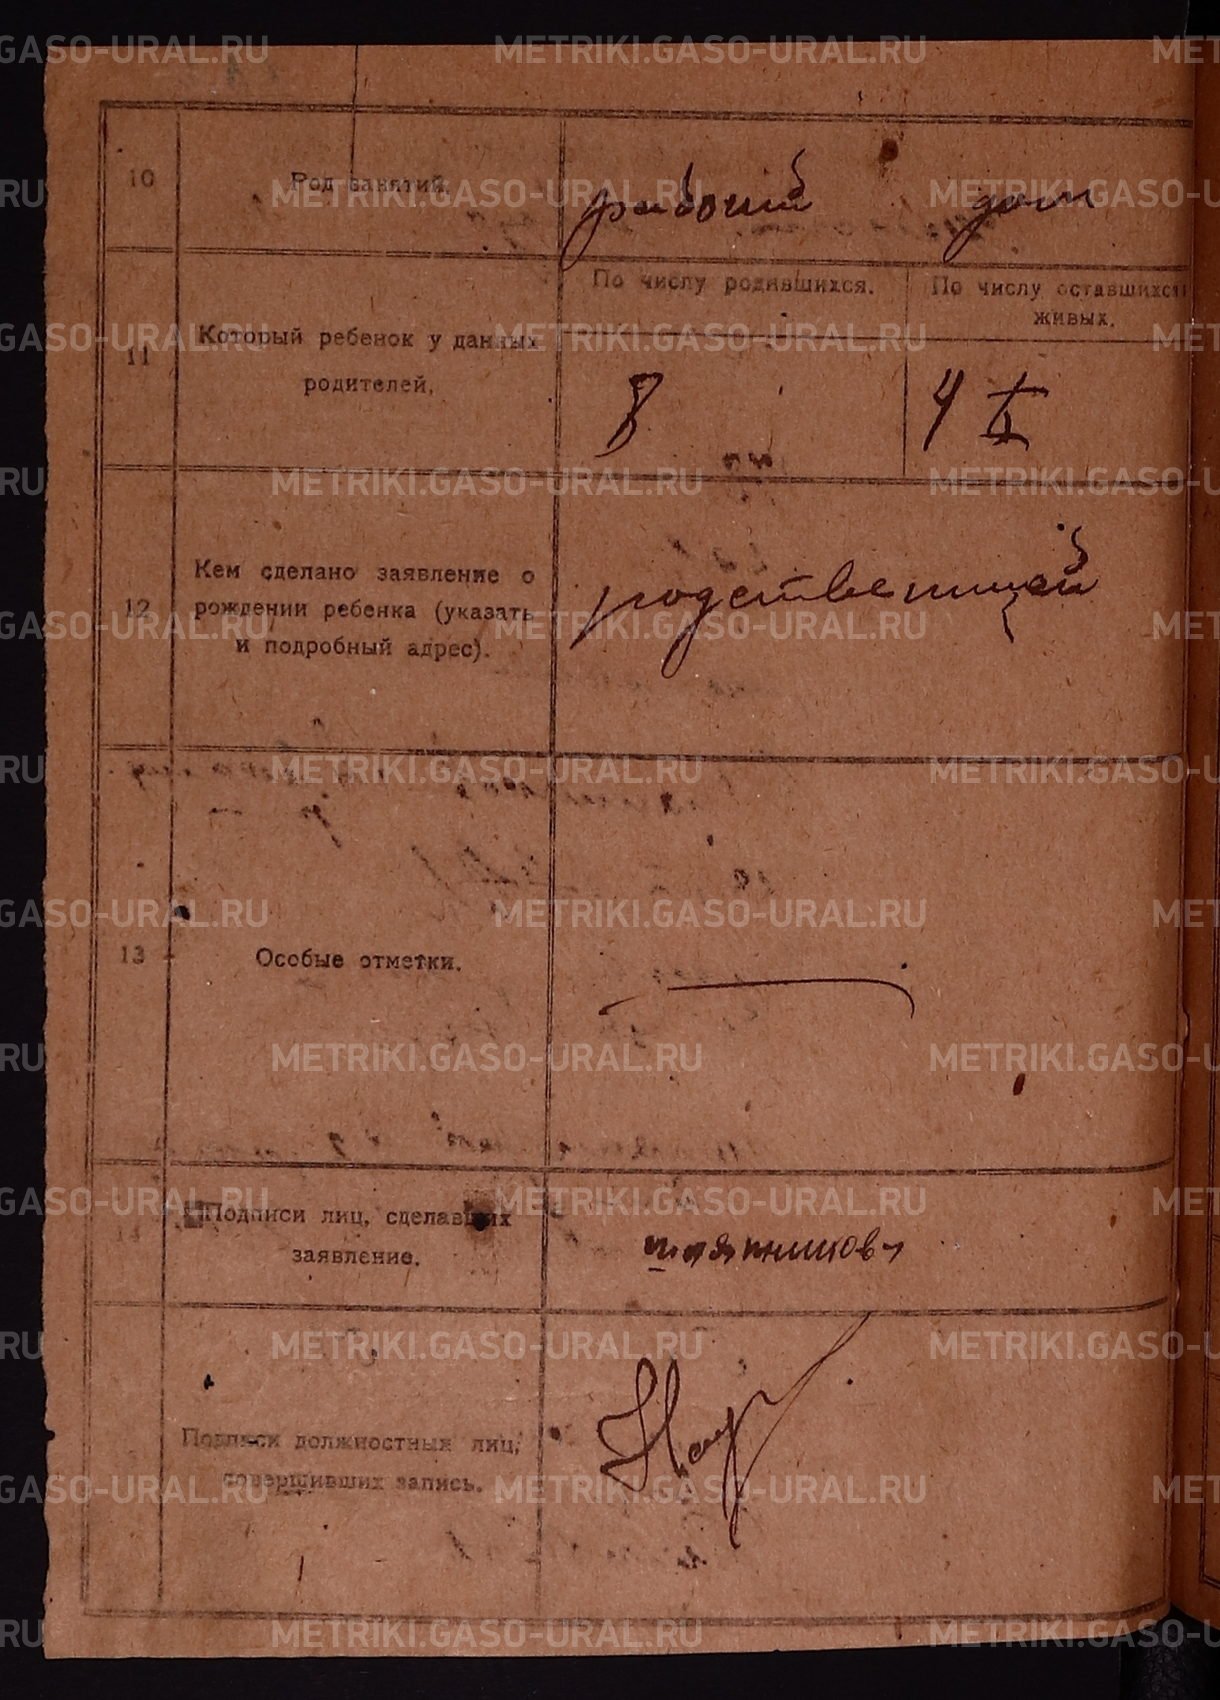 10 Род занятий. рабочий дом
По числу родившихся. По числу оставшихся
живых.
11 Который ребенок у данных
родителей.
8 4
12 Кем сделано заявление о
рождении ребенка (указать
и подробный адрес).
родственицей
13 Особые отметки.
14 Подписи лиц, сделавших
заявление.
Подписи должностных лиц,
совершивших запись.
METRIKI.GASO-URAL.RU